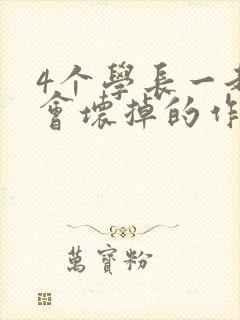 4个學長一
會壞掉的作
萬寶粉